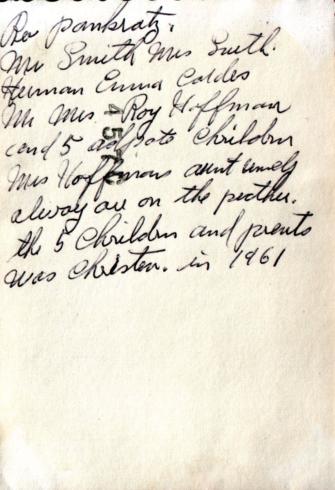 Rev Pankratz.
Mr Smith Mrs Smith.
Herman Emma Cordes
Mr Mrs. Roy Hoffman
and 5 adopate Chrildrn
Mrs Hoffmans aunt uncly
alway are on the picther.
the 5 Chrildrn and prents
was Christen. in 1961
45